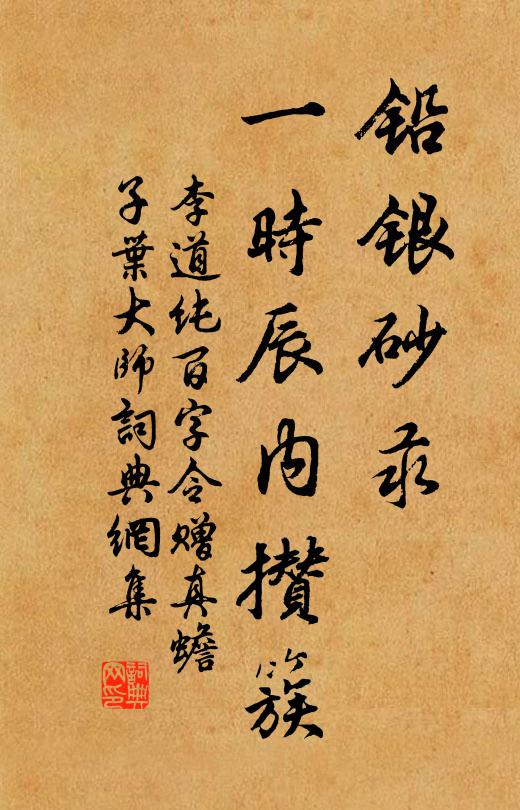 鉛銀砂汞
一時辰内攢簇
李道純百字令贈真蟾
子葉大師詞典網集
詞典
网印